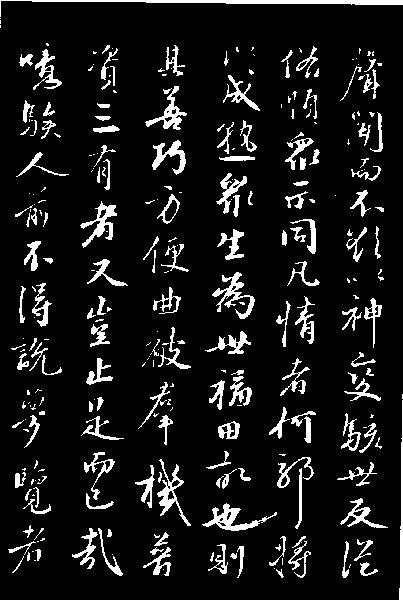 聲聞而不欲以神變駭世反從
俗順眾示同凡情者何耶將
以成熟眾生為世福田故也則
其善巧方便曲破群機普
資三有者又豈止是而已哉
噫癡人前不得說夢覽者